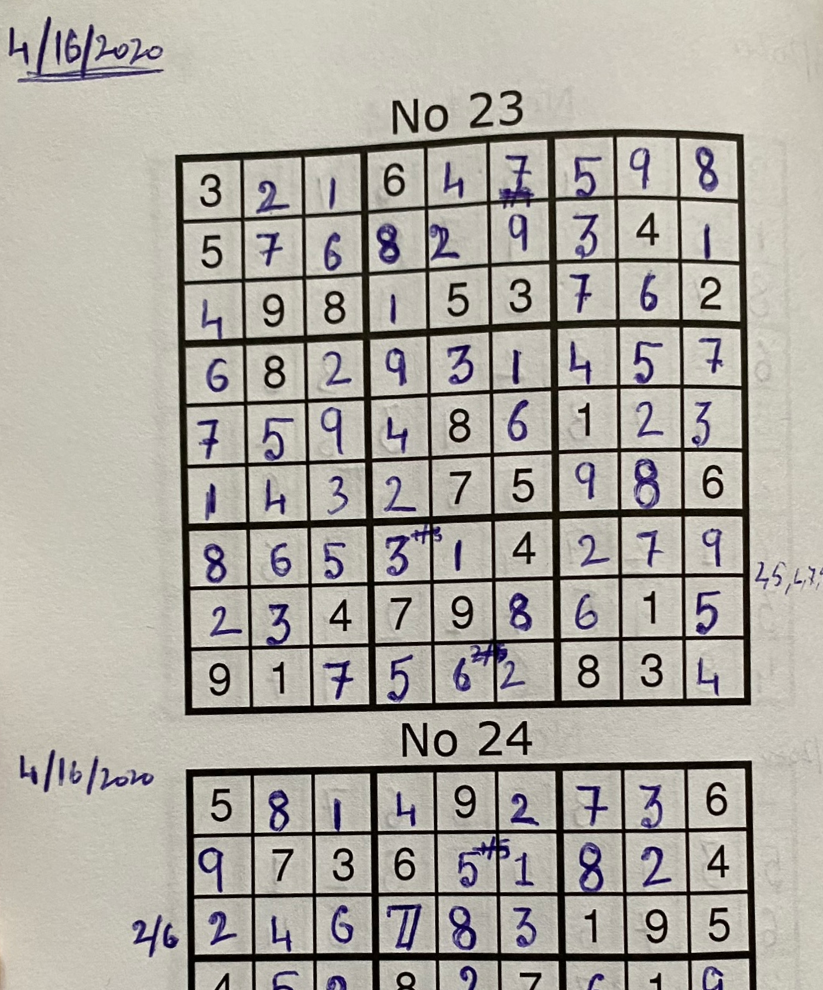 4/16/2020
No 23
3 2 1 6 4 7 5 9 8
5 7 6 8 2 9 3 4 1
4 9 8 1 5 3 7 6 2
6 8 2 9 3 1 4 5 7
7 5 9 4 8 6 1 2 3
1 4 3 2 7 5 9 8 6
8 6 5 3 1 4 2 7 9
2 3 4 7 9 8 6 1 5
9 1 7 5 6 2 8 3 4
No 24
4/16/2020
5 8 1 4 9 2 7 3 6
9 7 3 6 5 1 8 2 4
2/6 2 4 6 7 8 3 1 9 5
4 5 8 2 7 1 9